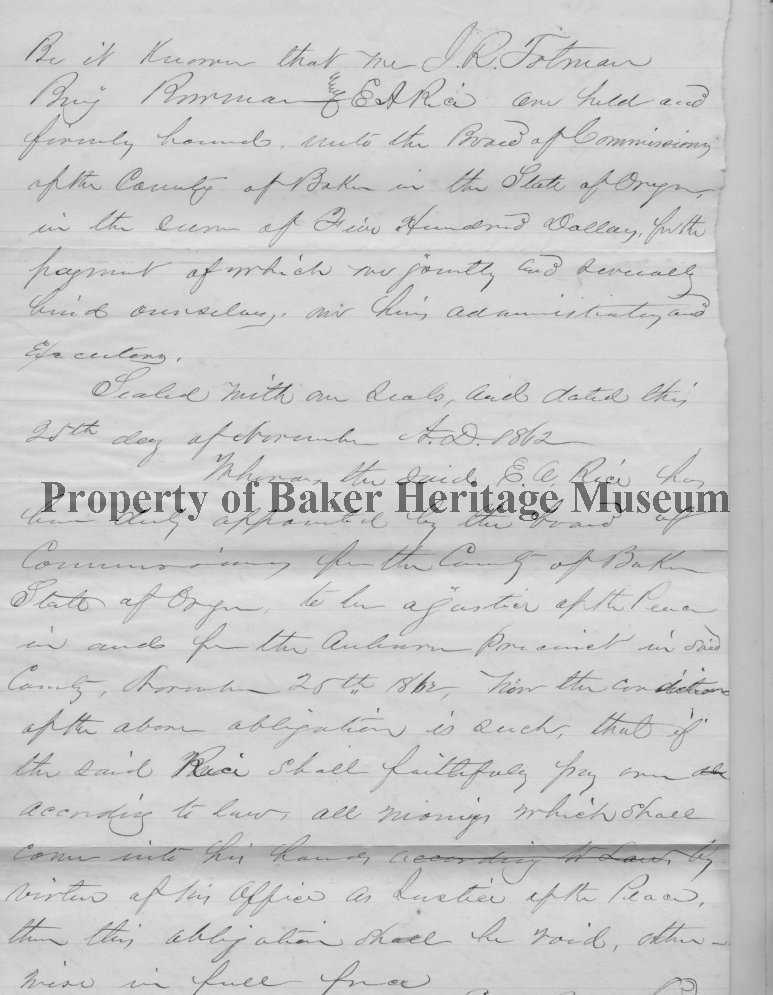 Be it Known that we J. R. Totman
Benj Bowman & E A Rice are held and
firmly bound unto the Board of Commissioners
of the County of Baker in the State of Oregon,
in the sum of Five Hundred Dollars, for the
payment of which we jointly and severally
bind ourselves, our heirs administrators and
Executors.
Sealed with our seals, and dated this
25th day of November A.D. 1862
Whereas the said E. A. Rice has
Property of Baker Heritage Museum
been duly appointed by the board of
Commissioners for the County of Baker
State of Oregon, to be a Justice of the Peace
in and for the Auburn Precinct in said
County, November 25th 1862, Now the condition
of the above obligation is such, that if
the said Rice shall faithfully pay over
according to law, all monies which shall
come into his hands according to Law by
virtue of his Office as Justice of the Peace,
then this obligation shall be void, other-
wise in full force